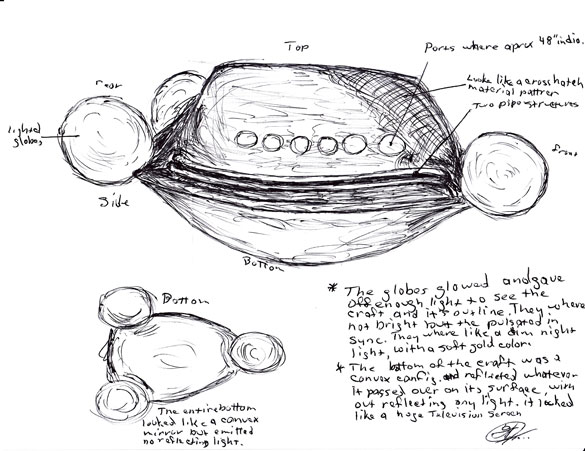 Top
Ports where aprox 48" in dia.
rear
Looks like a crosshatch
material pattren
Two pipe structures
lighted
globes
front
Side
Bottom
* The globes glowed and gave
off enough light to see the
craft and it's outline. They where
not bright but the pulsated in
sync. They where like a dim night
light, with a soft gold color.
* The bottom of the craft was a
convex config. and reflected whatever
it passed over on its surface, with
out reflecting any light. it looked
like a huge Television Screen
Bottom
The entire bottom
looked like a convex
mirror but emitted
no reflecting light.